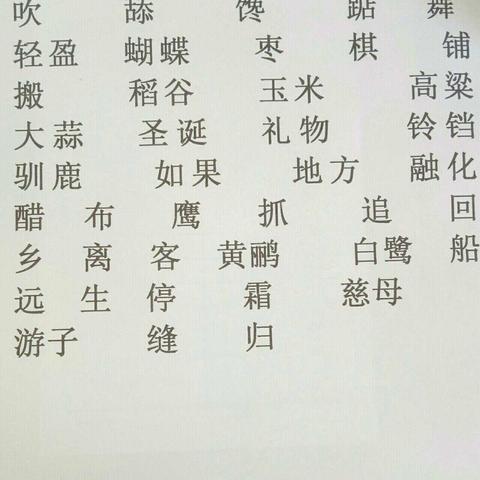 吹 舔 馋 踮 舞
轻盈 蝴蝶 枣 棋 铺
搬 稻谷 玉米 高粱
大蒜 圣诞 礼物 铃铛
驯鹿 如果 地方 融化
醋 布 鹰 抓 追 回
乡 离 客 黄鹂 白鹭 船
远 生 停 霜 慈母
游子 缝 归